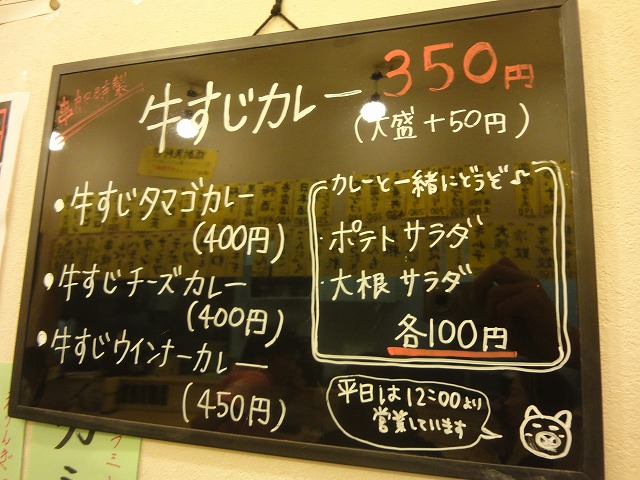 特製
牛すじカレー 350円
(大盛+50円)
・牛すじタマゴカレー
(400円)
・牛すじチーズカレー
(400円)
・牛すじウインナーカレー
(450円)
カレーと一緒にどうぞ♪
・ポテトサラダ
・大根サラダ
各100円
平日は12:00より
営業しています